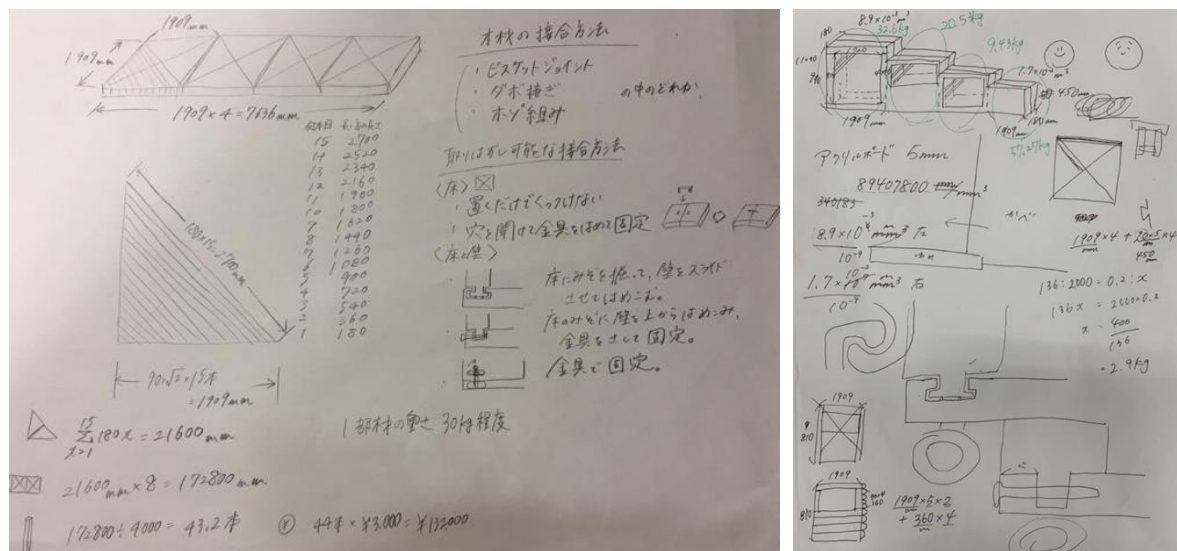 1909mm
1909mm
1909×4=7636mm
木材の接合方法
・ビスケットジョイント
・ダボ接ぎ
・ホゾ組み
の中のどれか、
取りはずし可能な接合方法
<床>
・置くだけでくっつけない
・穴を開けて金具をはめて固定
<床と壁>
床にみぞを掘って、壁をスライド
させてはめこむ。
床のみぞに壁を上からはめこみ、
金具をさして固定。
金具で固定。
15 2700
14 2520
13 2340
12 2160
11 1980
10 1800
9 1620
8 1440
7 1260
6 1080
5 900
4 720
3 540
2 360
1 180
180×15=2700mm
90×√2×15本
=1909mm
15
Σ 180x = 21600mm
x=1
1部材の重さ 30kg程度
21600mm×8=172800mm
172800÷4000=43.2本
¥ 44本×¥3,000=¥132,000
180
32.6kg
20.5kg
9.43kg
1909mm
450mm
1909mm
180mm
57.27kg
アクリルボード 5mm
89407800
340183
かべ
1909×4+
450mm
136:2000=0.2:x
136x=2000×0.2
x=400
136
=2.9kg
10⁻⁹
右
10⁻⁹
1909
810
1909
810
1909×5×2
+360×4